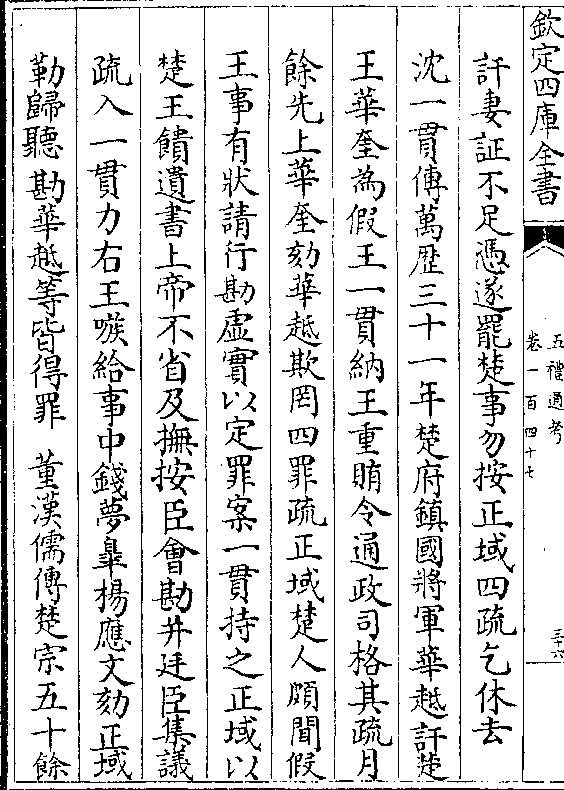 欽定四庫全書
五禮通考
卷一百四十七
三十六
訐妻証不足憑遂罷楚事勿按正域四疏乞休去
沈一貫傳萬歷三十一年楚府鎮國將軍華趆訐楚
王華奎為假王一貫納王重賄令通政司格其疏月
餘先上華奎劾華趆欺罔四罪疏正域楚人頗聞假
王事有狀請行勘虛實以定罪案一貫持之正域以
楚王饋遺書上帝不省及撫按臣會勘并廷臣集議
疏入一貫力右王嗾給事中錢夢臯楊應文劾正域
勒歸聽勘華趆等皆得罪　董漢儒傳楚宗五十餘